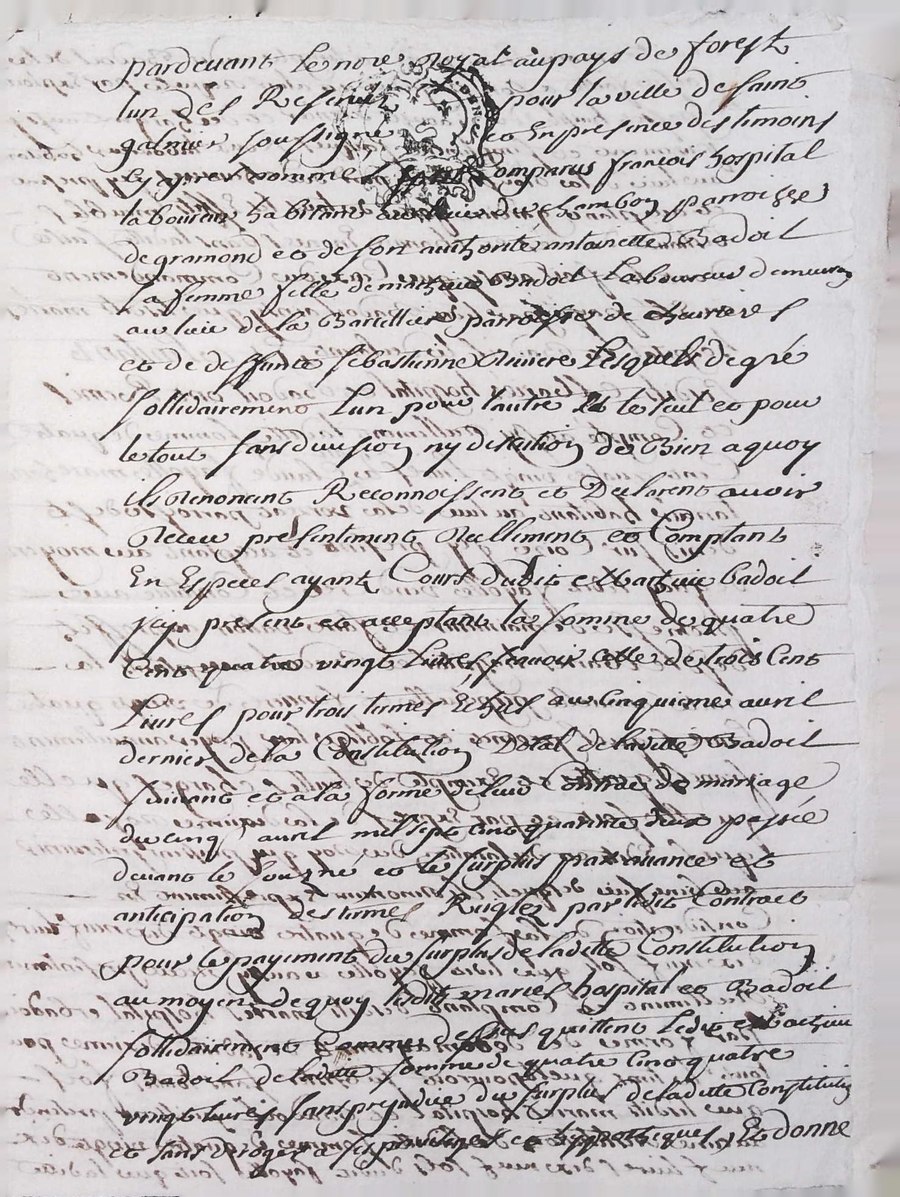 pardevant le nore Royal au pays de forest
lun des Reservez pour la ville de saint
galmier soussigne et En presence des timoins
cy apres nommes comparus francois hospital
laboureur habitant du chambon parroisse
de gramond et de son authorité antoinette Badoil
sa femme fille de mathieu Badoil Laboureur demeuran
au lieu de la Barelliere parroisse de chevrieres
et de deffunte sebastienne Riviere Lesquels de gré
sollidairement lun pour lautre le seul et pour
le tout sans division ny discution de Bien a quoy
ils Renoncent Reconnoissent et Declarent avoir
Receu presentiment Reellement et Comptant
En Especes ayant Court dudit Mathieu Badoil
jcy present et acceptant la somme de quatre
Cent quatre vingt livres, scavoir celle de trois Cent
livres pour trois termes Echus au Cinquieme avril
dernier de la Constitution Dotal de ladite Badoil
suivant et a la forme de leur Contrac de mariage
du cinq avril mil sept cent quarante deux passée
devant le sousné et le surplus par avance et
anticipation des termes Regles par ledit Contract
pour le payement du surplus de laditte Constitution
au moyen de quoy lesdits maries hospital et Badoil
sollidairement comme dessus quittent ledit Mathieu
Badoil de laditte somme de quatre Cent quatre
vingt livres sans prejudice du surplus de laditte Constitution
et sans deroger a ses privileges et hippotteques Et donne